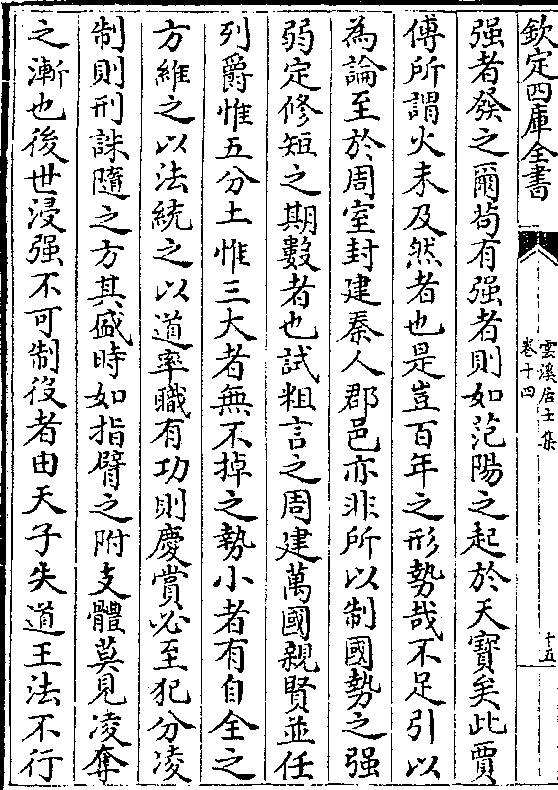 欽定四庫全書
雲溪居士集
卷十四
十五
强者發之爾苟有强者則如范陽之起於天寶矣此賈
傅所謂火未及然者也是豈百年之形勢哉不足引以
為論至於周室封建秦人郡邑亦非所以制國勢之强
弱定修短之期數者也試粗言之周建萬國親賢並任
列爵惟五分土惟三大者無不掉之勢小者有自全之
方維之以法統之以道率職有功則慶賞必至犯分凌
制則刑誅隨之方其盛時如指臂之附支體莫見凌奪
之漸也後世浸强不可制後者由天子失道王法不行